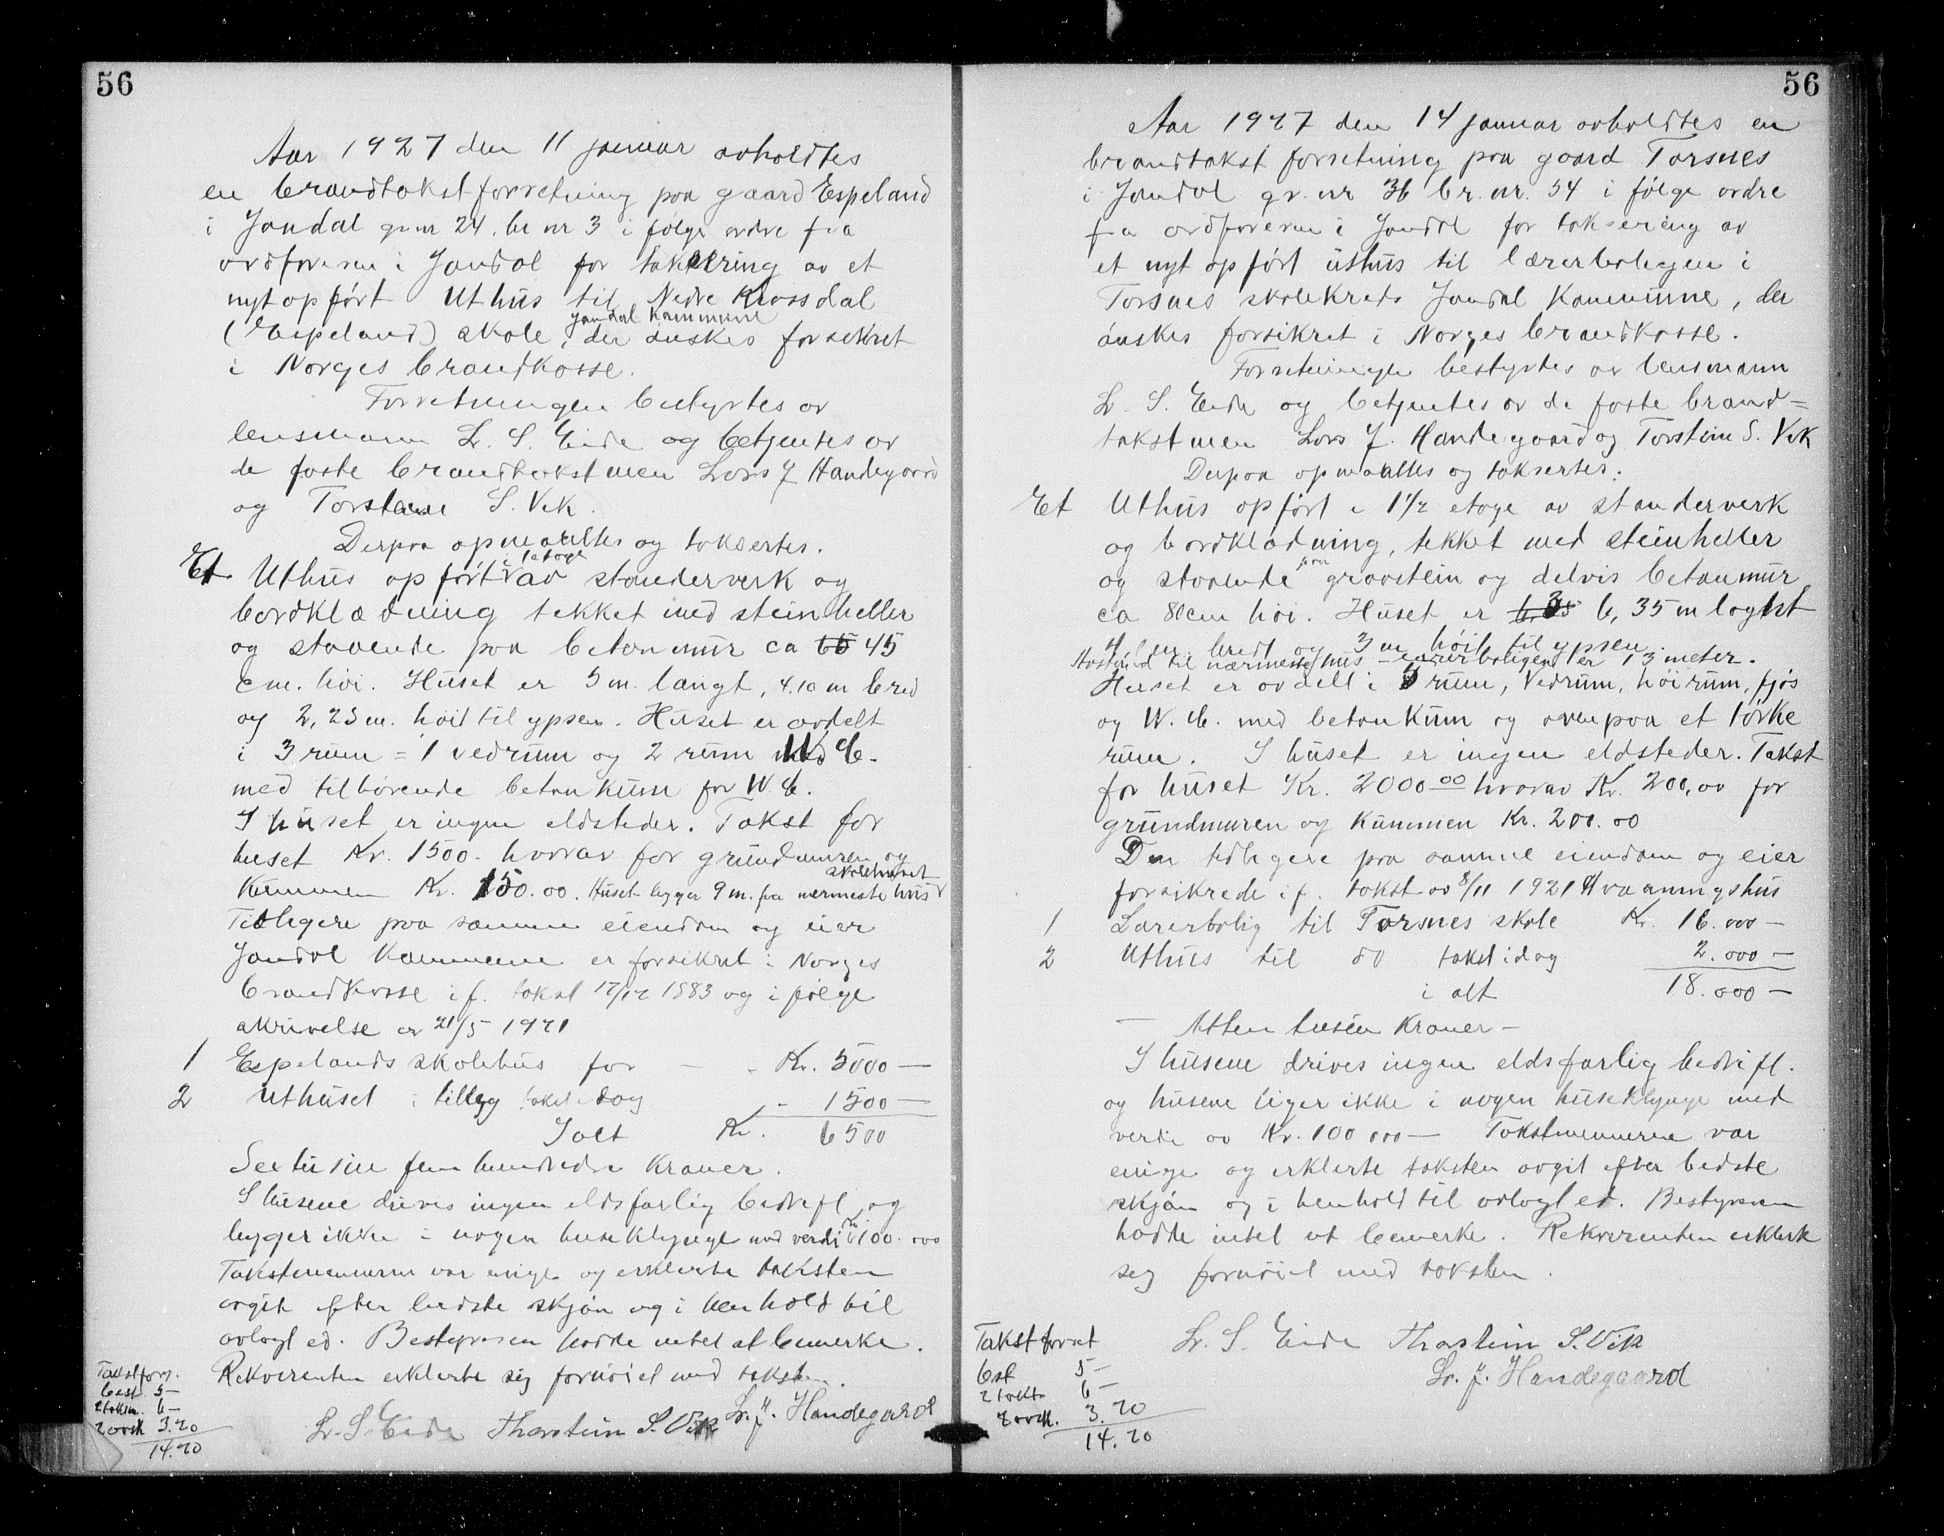 56
Aar 1927 den 11 januar avholdtes
en brandtakstforretning paa gaard Espeland
i Jondal gr nr 24. br nr 3 i følge ordre fra
ordføreren i Jondal for taksering av et
nyt opført Uthus til Nedre Krossdal
Jondal Kommune
(Espeland) skole, der ønskes forsikret
i Norges brandkasse.
Forretningen bestyrtes av
lensmann L. S. Eide og betjentes av
de faste brandtakstmen Lars J Handegaard
og Torstein S. Vik.
Derpaa opmaaltes og taksertes.
i 1 etage
Et Uthus opført av standerverk og
bordklædning tekket med steinheller
og staaende paa betonmur ca 65 45
cm. høi. Huset er 5 m. langt, 4.10 m bred
og 2,25 m. høit til ypsen. Huset er avdelt
i 3 rum = 1 vedrum og 2 rum med W. C.
med tilhørende betonkum for W. C.
I huset er ingen eldsteder. Takst for
huset Kr. 1500.- hvorav for grundmuren og
skolehuset
Kummen Kr. 150.00. Huset ligger 9 m. fra nermeste hus
Tidligere paa samme eiendom og eier
Jondal Kommune er forsikret i Norges
brandkasse if. takst 17/12 1883 og i følge
skrivelse av 21/5 1921
1 Espelands skolehus for - - Kr. 5000 —
2 Uthuset i tillæg takst idag - 1500 —
I alt Kr. 6500
Sextusine femhundrede Kroner.
I husene drives ingen eldsfarlig bedrift og
ligger ikke i nogen huseklynge med verdi Kr 100.000
Takstmennerne var enige og erklerte taksten
avgit efter bedste skjøn og i henhold til
avlagt ed. Bestyreren hadde intet at bemerke.
Rekvirenten erklerte sig fornøiet med taksten.
Takstforr.
best 5 —
2 takstm. 6 —
2 avsk 3.20
14.20
L. S. Eide Thorstein S. Vik L. J. Handegaard
56
Aar 1927 den 14 januar avholdtes en
brandtakst forretning paa gaard Torsnes
i Jondal gr. nr 36 br. nr. 54 i følge ordre
fra ordføreren i Jondal for taksering av
et nyt opført uthus til lærerboligen i
Torsnes skolekreds Jondal Kommune, der
ønskes forsikret i Norges brandkasse.
Forretningen bestyrtes av lensmann
L. S. Eide og betjentes av de faste brand=
takstmen Lars J. Handegaard og Torstein S. Vik
Derpaa opmaaltes og taksertes:
Et Uthus opført i 1 1/2 etage av standerverk
og bordklædning, tekket med steinheller
paa
og staaende graastein og delvis betonmur
ca 80 cm høi. Huset er 6,35 m langt
4 m bredt og 3 m høit til ypsen.
Avstand til nærmeste hus – lærerboligen er 13 meter.
Huset er avdelt i 5 rum, Vedrum, høirum, fjøs
og W. C. med betonkum og ovenpaa et tørke
rum. I huset er ingen eldsteder. Takst
for huset Kr. 2000.00 hvorav Kr. 200,00 for
grundmuren og Kummen Kr. 200.00
Den tidligere paa samme eiendom og eier
forsikrede if. takst av 8/11 1921 Vaaningshus
1 Lærerbolig til Torsnes skole Kr. 16.000 —
2 Uthus til do takst idag 2.000 —
i alt 18.000 —
— Atten tusen Kroner —
I husene drives ingen eldsfarlig bedrift.
og husene liger ikke i nogen huseklynge med
verdi av Kr. 100 000 — Takstmennerne var
enige og erklerte taksten avgit efter bedste
skjøn og i henhold til avlagt ed. Bestyreren
hadde intet at bemerke. Rekvirenten erklerte
seg fornøiet med taksten.
Takst forret
best 5 —
2 takst 6 —
2 avsk. 3.20
14.20
L. S. Eide Thorstein S. Vik
L. J. Handegaard